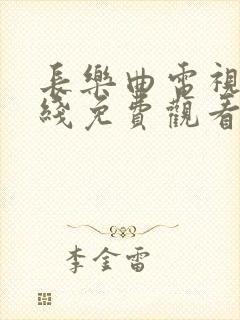 長樂曲電視
綫免費觀看
李金雷